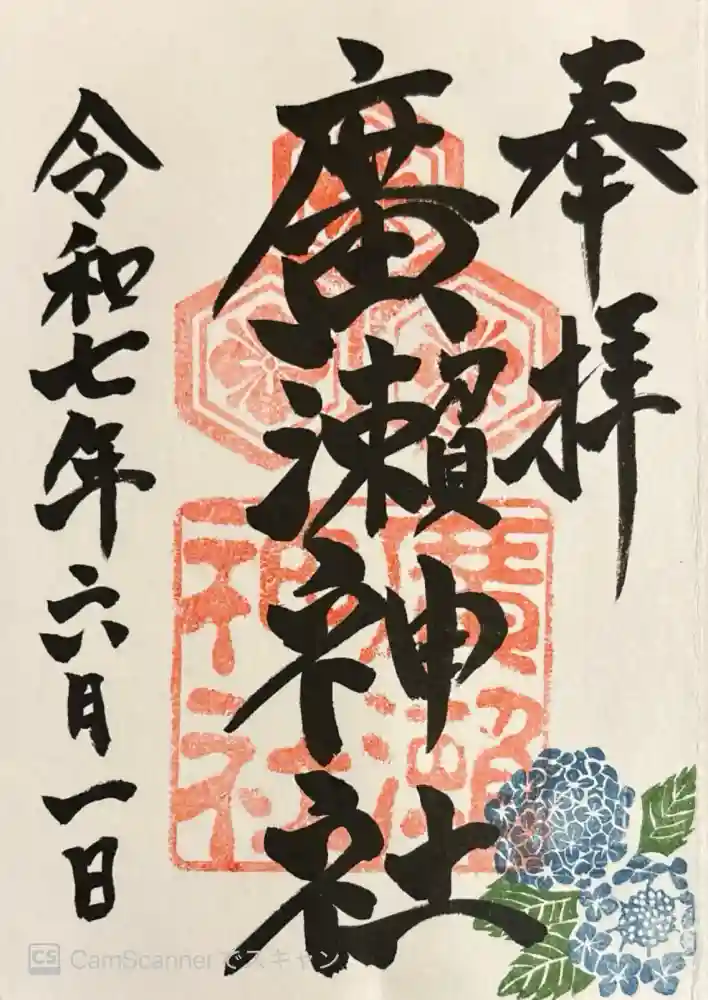 奉拝
廣瀬神社
令和七年六月一日
廣瀬
神社
CS CamScannerでスキャン